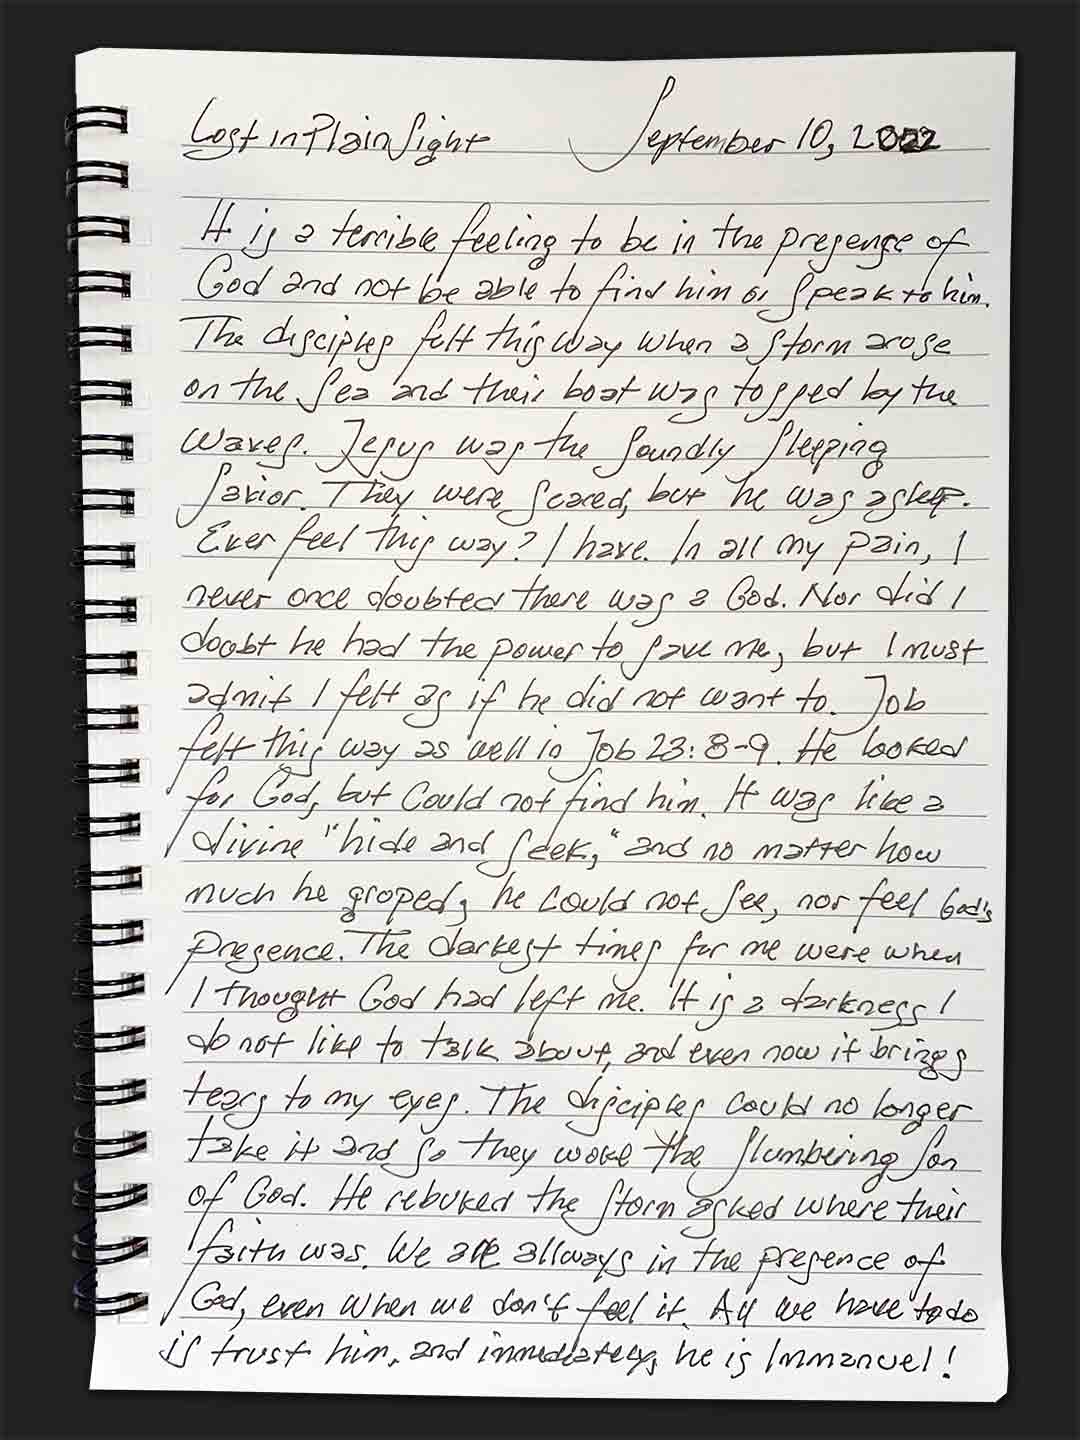 Lost in Plain Sight September 10, 2022
It is a terrible feeling to be in the presence of
God and not be able to find him or speak to him.
The disciples felt this way when a storm arose
on the sea and their boat was tossed by the
waves. Jesus was the soundly sleeping
savior. They were scared, but he was asleep.
Ever feel this way? I have. In all my pain, I
never once doubted there was a God. Nor did I
doubt he had the power to save me, but I must
admit I felt as if he did not want to. Job
felt this way as well in Job 23:8-9. He looked
for God, but could not find him. It was like a
divine "hide and seek," and no matter how
much he groped, he could not see, nor feel God's
presence. The darkest times for me were when
I thought God had left me. It is a darkness I
do not like to talk about, and even now it brings
tears to my eyes. The disciples could no longer
take it and so they woke the slumbering Son
of God. He rebuked the storm asked where their
faith was. We are allways in the presence of
God, even when we don't feel it. All we have to do
is trust him, and immediately, he is Immanuel!